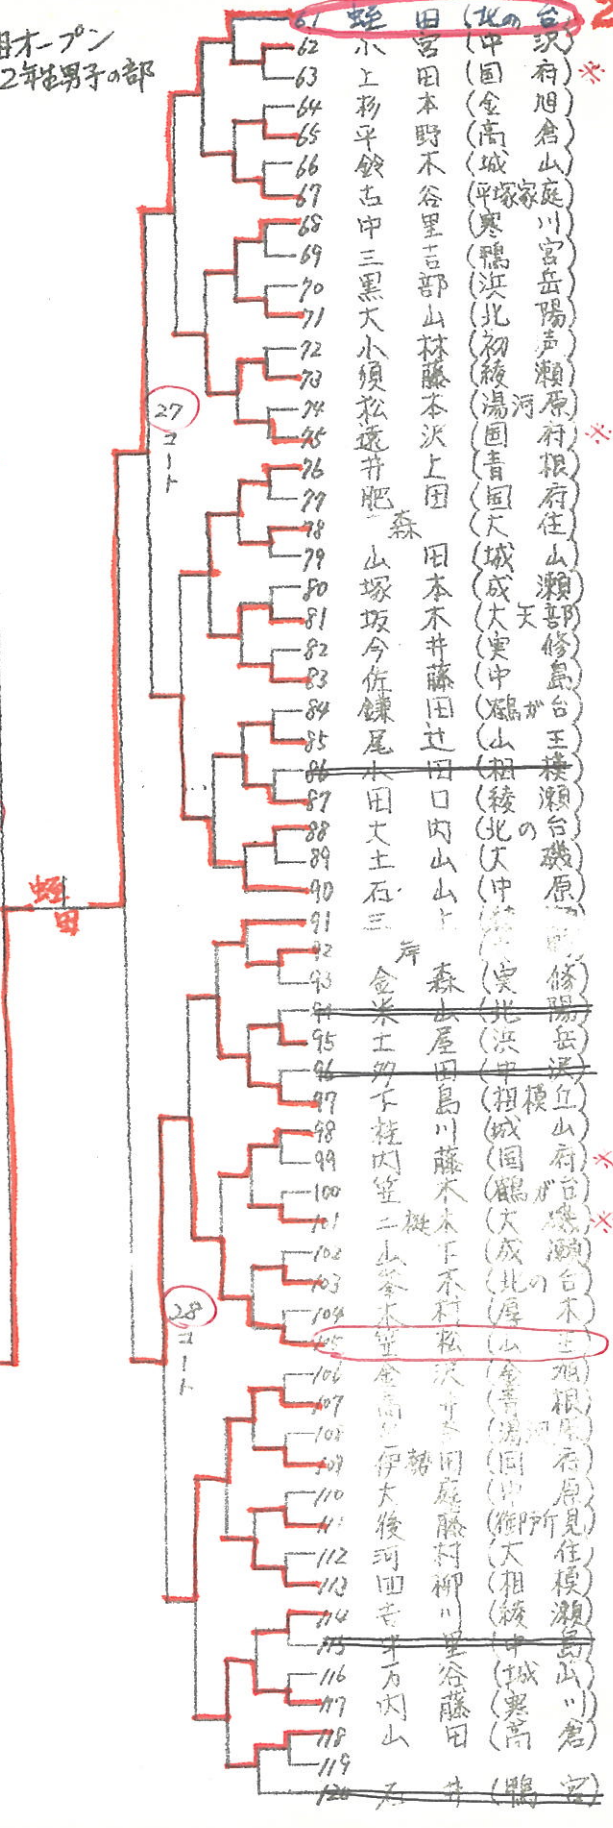 オープン
2年生男子の部
61 蛭田(北の台)
62 小宮(中沢)
63 上田(国府) ※
64 杉本(金旭)
65 平野(高倉)
66 鈴木(城山)
67 古谷(平塚家庭)
68 中里(寒川)
69 三吉(鴨宮)
70 黒部(浜岳)
71 大山(北陽)
72 小林(初声)
73 須藤(綾瀬)
74 松本(湯河原)
75 遠沢(国府) ※
76 井上(青根)
77 肥田(国府)
78 森(大住)
79 山田(城山)
80 塚本(成瀬)
81 坂木(大天部)
82 今井(実修)
83 佐藤(中島)
84 鎌田(鶴が台)
85 尾辻(山王)
86 小田(相模)
87 田口(綾瀬)
88 大内(北の台)
89 土山(大磯)
90 石山(中原)
91 三上
92 岸
93 金森(実修)
94 米山(北陽)
95 土屋(浜岳)
96 田(中沢)
97 下島(相模丘)
98 桂川(城山)
99 内藤(国府) ※
100 笠木(鶴が台)
101 二梃木(大磯) ※
102 山下(成瀬)
103 木(北の台)
104 木村(厚木)
105 笠松(山王)
106 金沢(金旭)
107 高(青根)
108
109 伊勢田(国府)
110 大庭(中原)
111 後藤(御所見)
112 河村(大住)
113 四柳(相模)
114 吉川(綾瀬)
115 里(中島)
116 万谷(城山)
117 内藤(寒川)
118 山田(高倉)
119
120 石井(鴨宮)
27コート
蛭田
28コート